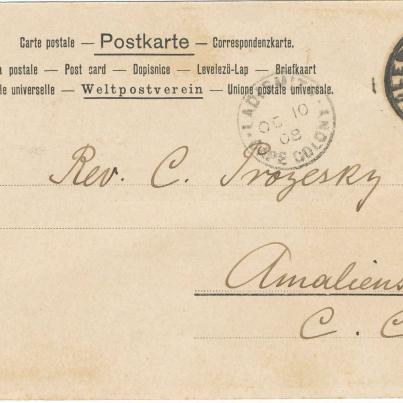 Carte postale — Postkarte — Correspondenzkarte.
postale — Post card — Dopisnice — Levelező-Lap — Briefkaart
universelle — Weltpostverein — Union postale universale.
LADISMITH
OC 10
08
CAPE COLONY
Rev. C. Prozesky
Amaliens
C. C